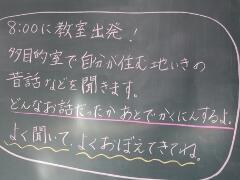 8:00に教室出発！
多目的室で自分が住む地いきの
昔話などを聞きます。
どんなお話だったかあとでかくにんするよ。
よく聞いて、よくおぼえてきてね。